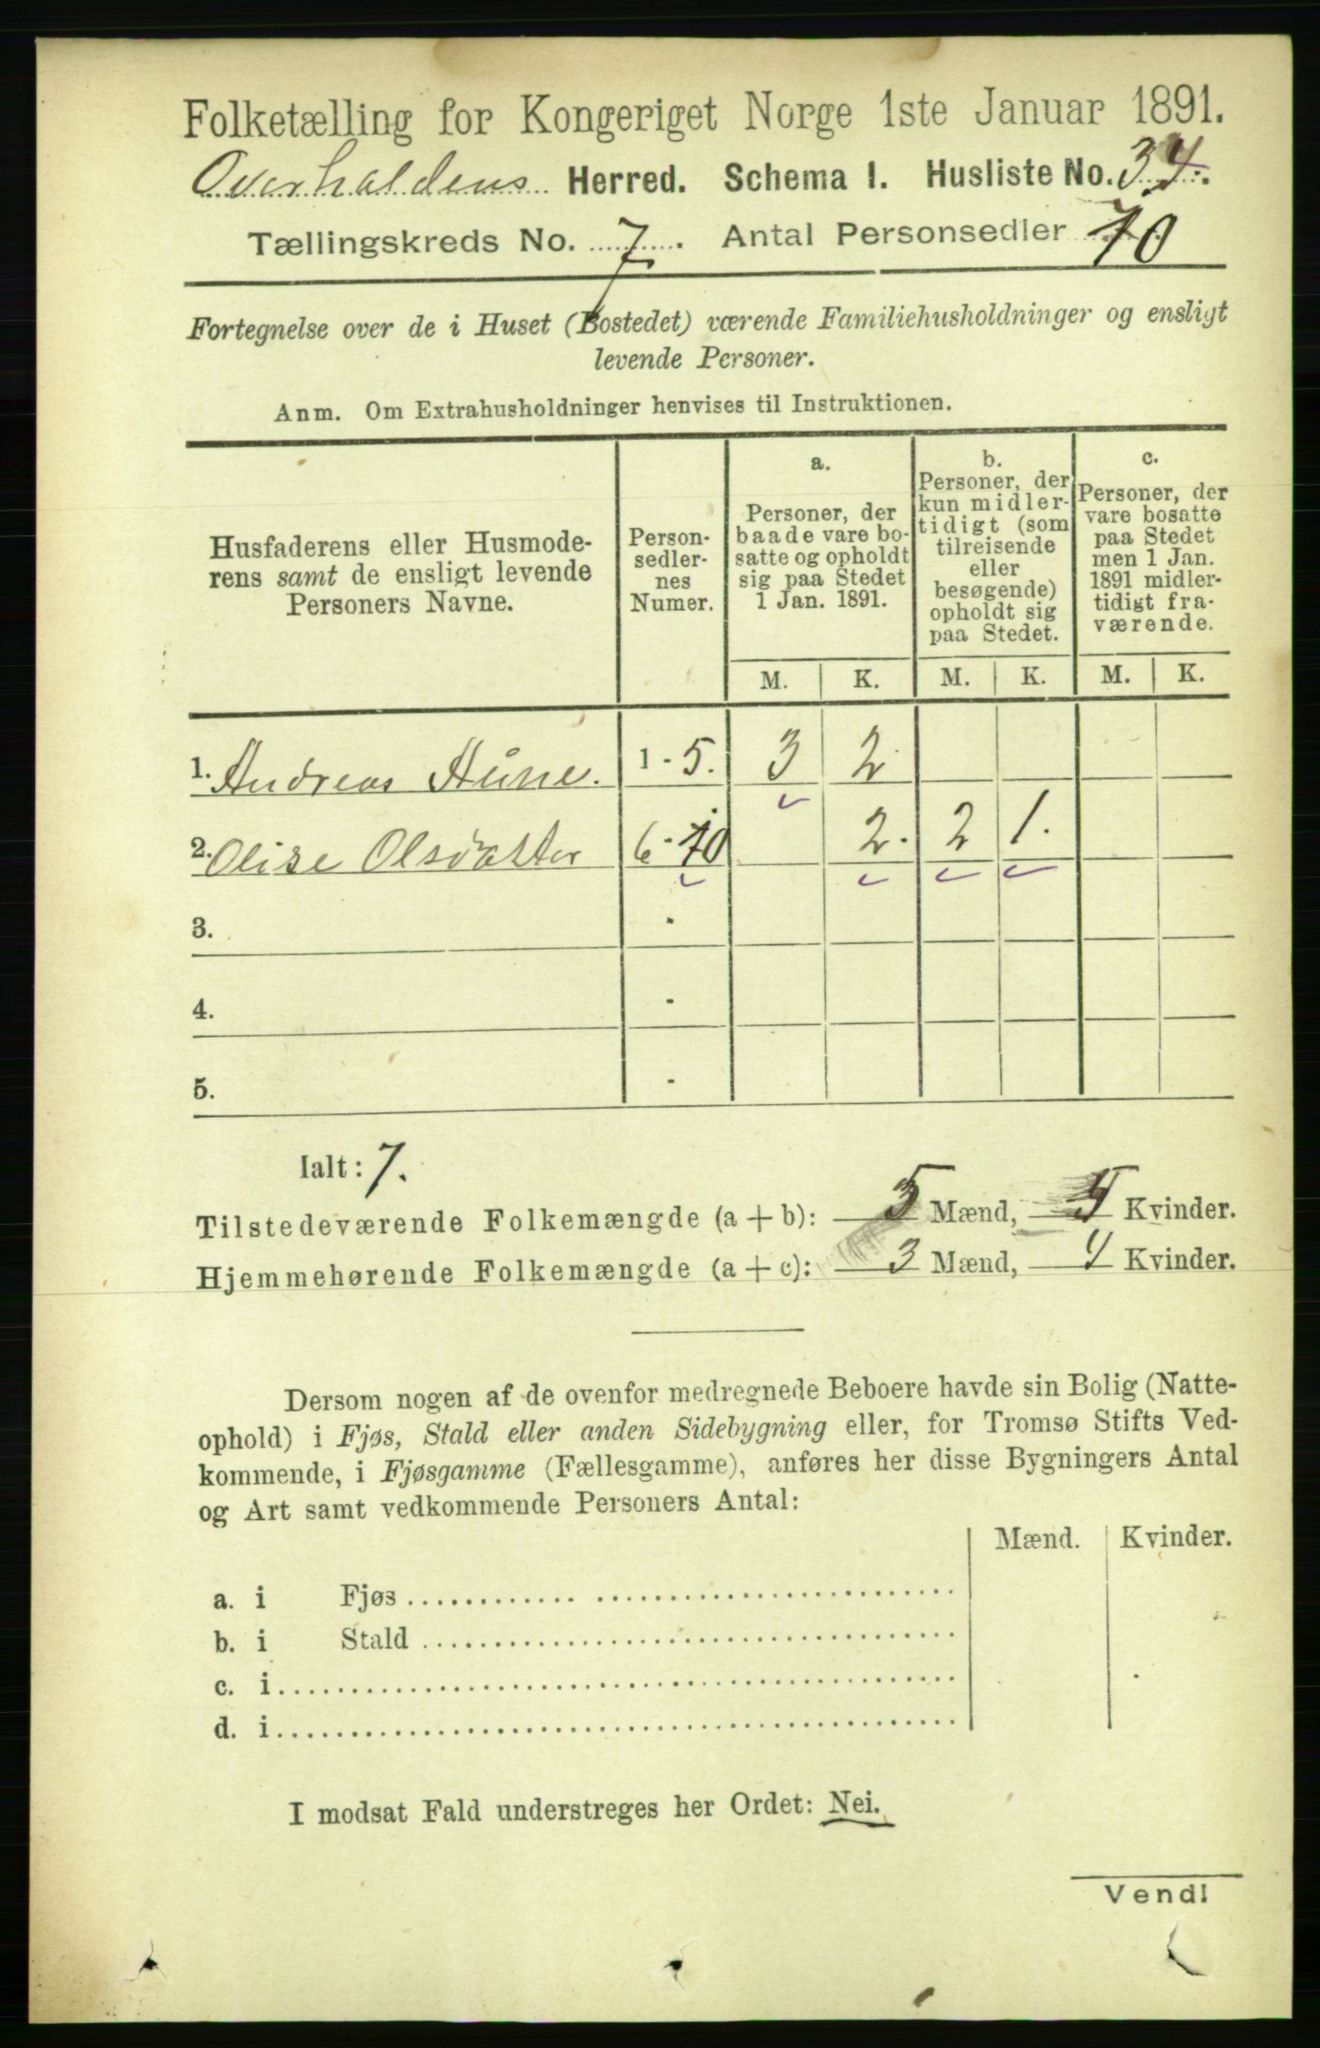 Folketælling for Kongeriget Norge 1ste Januar 1891.
Overhaldens Herred. Schema I. Husliste No. 34.
Tællingskreds No. 7. Antal Personsedler 10
Fortegnelse over de i Huset (Bostedet) værende Familiehusholdninger og ensligt
levende Personer.
Anm. Om Extrahusholdninger henvises til Instruktionen.
Husfaderens eller Husmode-
rens samt de ensligt levende
Personers Navne.
Person-
sedler-
nes
Numer.
a.
Personer, der
baade vare bo-
satte og opholdt
sig paa Stedet
1 Jan. 1891.
b.
Personer, der
kun midler-
tidigt (som
tilreisende
eller
besøgende)
opholdt sig
paa Stedet.
c.
Personer, der
vare bosatte
paa Stedet
men 1 Jan.
1891 midler-
tidigt fra-
værende.
M. K. M. K. M. K.
1. Andreas Aune. 1 - 5. 3 2
2. Olise Olsdatter 6 - 10 2. 2 1.
3. -
4. -
5. -
Ialt: 7.
Tilstedeværende Folkemængde (a + b): 5 Mænd, 5 Kvinder.
Hjemmehørende Folkemængde (a + c): 3 Mænd, 4 Kvinder.
Dersom nogen af de ovenfor medregnede Beboere havde sin Bolig (Natte-
ophold) i Fjøs, Stald eller anden Sidebygning eller, for Tromsø Stifts Ved-
kommende, i Fjøsgamme (Fællesgamme), anføres her disse Bygningers Antal
og Art samt vedkommende Personers Antal:
Mænd. Kvinder.
a. i Fjøs
b. i Stald
c. i
d. i
I modsat Fald understreges her Ordet: Nei.
Vend!